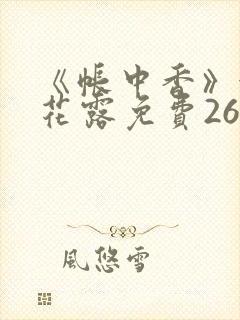 《帳中香》
花露免費26
風悠雪